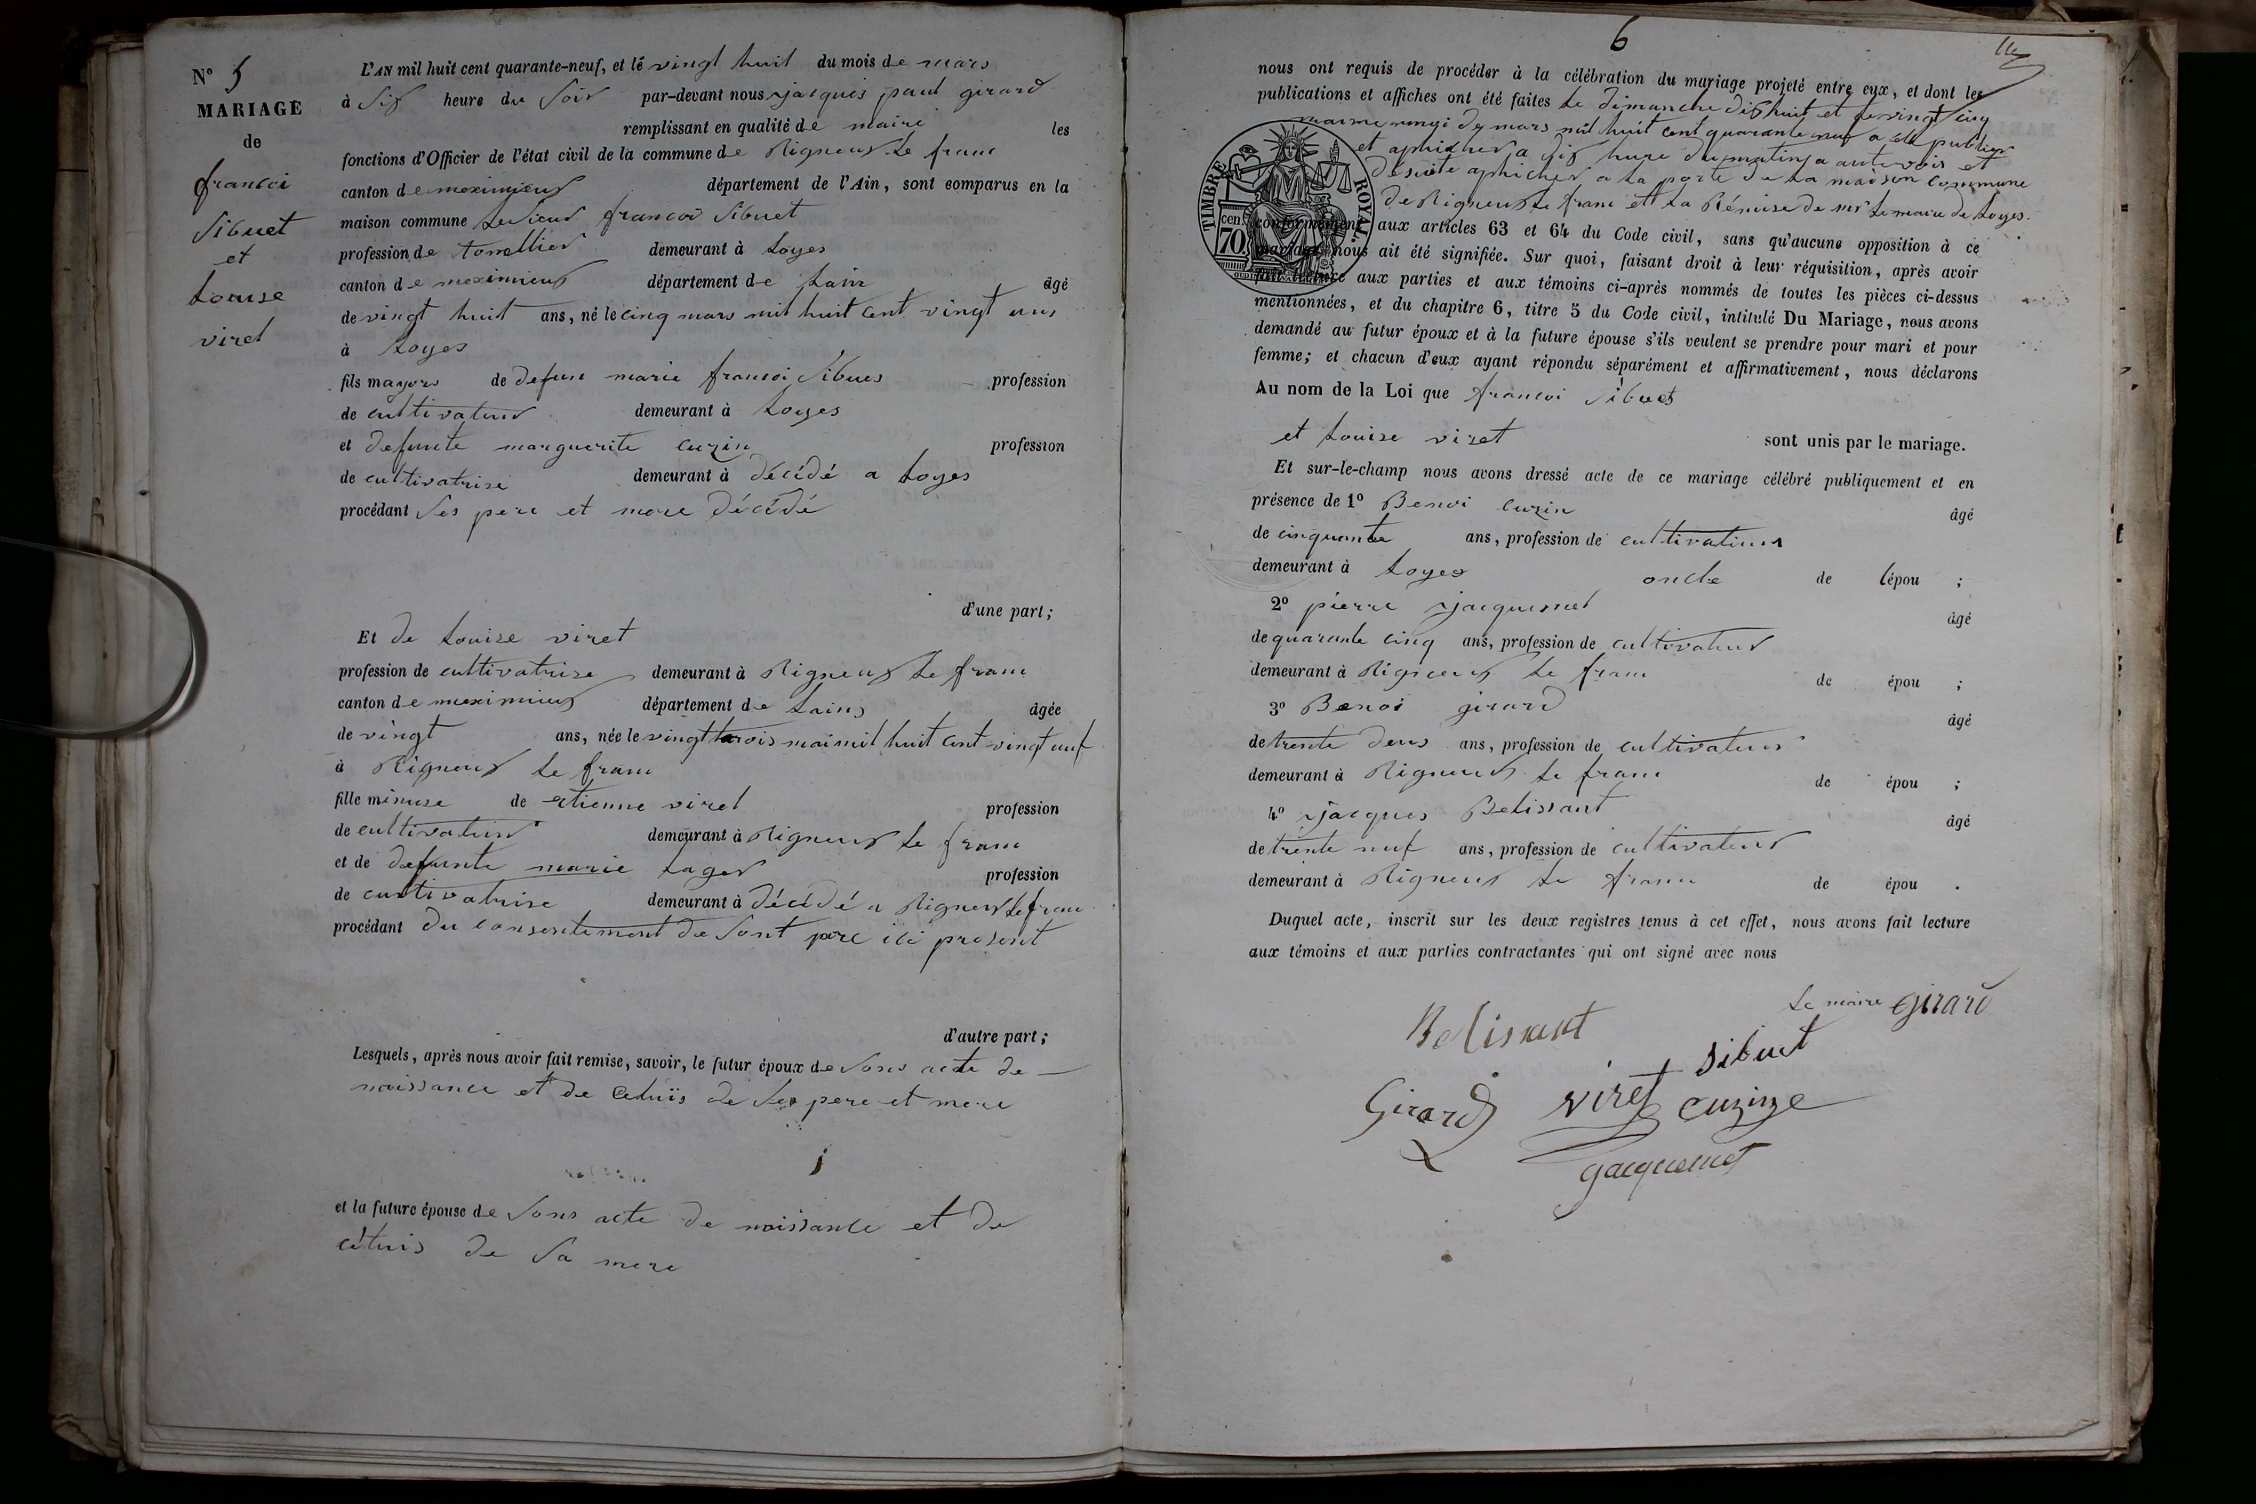 N° 5
MARIAGE
de
francoi
Sibuet
et
Louise
viret
L'AN mil huit cent quarante-neuf, et le vingt huit du mois de mars
à Six heure du Soir par-devant nous jacques paul girard
remplissant en qualité de maire les
fonctions d'Officier de l'état civil de la commune de Rigneux le franc
canton de meximieux département de l'Ain, sont comparus en la
maison commune Le Sieur francoi Sibuet
profession de tonellier demeurant à Loyes
canton de meximieux département de Lain âgé
de vingt huit ans, né le cinq mars mil huit cent vingt uns
à Loyes
fils mayeur de defun marie francoi Sibues profession
de cultivateur demeurant à Loyes
et defunte marguerite cuzin profession
de cultivatrise demeurant à décédé a Loyes
procédant Ses pere et mere décédé
d'une part;
Et de Louise viret
profession de cultivatrise demeurant à Rigneux le franc
canton de meximieux département de Lains âgée
de vingt ans, née le vingt trois mai mil huit cent vingt neuf
à Rigneux le franc
fille mineure de etienne viret profession
de cultivateur demeurant à Rigneux le franc
et de defunte marie Lager profession
de cultivatrise demeurant à décédé a Rigneux le franc
procédant du consentement de Sont pere ici present
d'autre part;
Lesquels, après nous avoir fait remise, savoir, le futur époux de Sons acte de
naissance et de celuis de Ses pere et mere
et la future épouse de Sons acte de naissance et de
celuis de Sa mere
6
nous ont requis de procéder à la célébration du mariage projeté entre eux, et dont les
publications et affiches ont été faites le dimanche dix huit et le vingt cinq
du mars mil huit cent quarante neuf a été publier
et aphicher a dix hure du matin a aute vois et
desuite aphicher a la porte de la maison commune
de Rigneux le franc et la Rémise de mr le maire de Loyes.
TIMBRE ROYAL.
70 cen.
conformément aux articles 63 et 64 du Code civil, sans qu'aucune opposition à ce
mariage nous ait été signifiée. Sur quoi, faisant droit à leur réquisition, après avoir
fait lecture aux parties et aux témoins ci-après nommés de toutes les pièces ci-dessus
mentionnées, et du chapitre 6, titre 5 du Code civil, intitulé Du Mariage, nous avons
demandé au futur époux et à la future épouse s'ils veulent se prendre pour mari et pour
femme; et chacun d'eux ayant répondu séparément et affirmativement, nous déclarons
Au nom de la Loi que francoi Sibuet
et Louise viret sont unis par le mariage.
Et sur-le-champ nous avons dressé acte de ce mariage célébré publiquement et en
présence de 1° Benoi cuzin âgé
de cinquante ans, profession de cultivateur
demeurant à Loyes oncle de lépou ;
2° pierre jacquemet âgé
de quarante cinq ans, profession de cultivateur
demeurant à Rigneux le franc de épou ;
3° Benoi girard âgé
de trente deux ans, profession de cultivateur
demeurant à Rigneux le franc de épou ;
4° jacques Belissant âgé
de trente neuf ans, profession de cultivateur
demeurant à Rigneux le franc de épou .
Duquel acte, inscrit sur les deux registres tenus à cet effet, nous avons fait lecture
aux témoins et aux parties contractantes qui ont signé avec nous
Le maire Girard
Belissant
Sibuet
Girard viret cuzin
Jacquemet